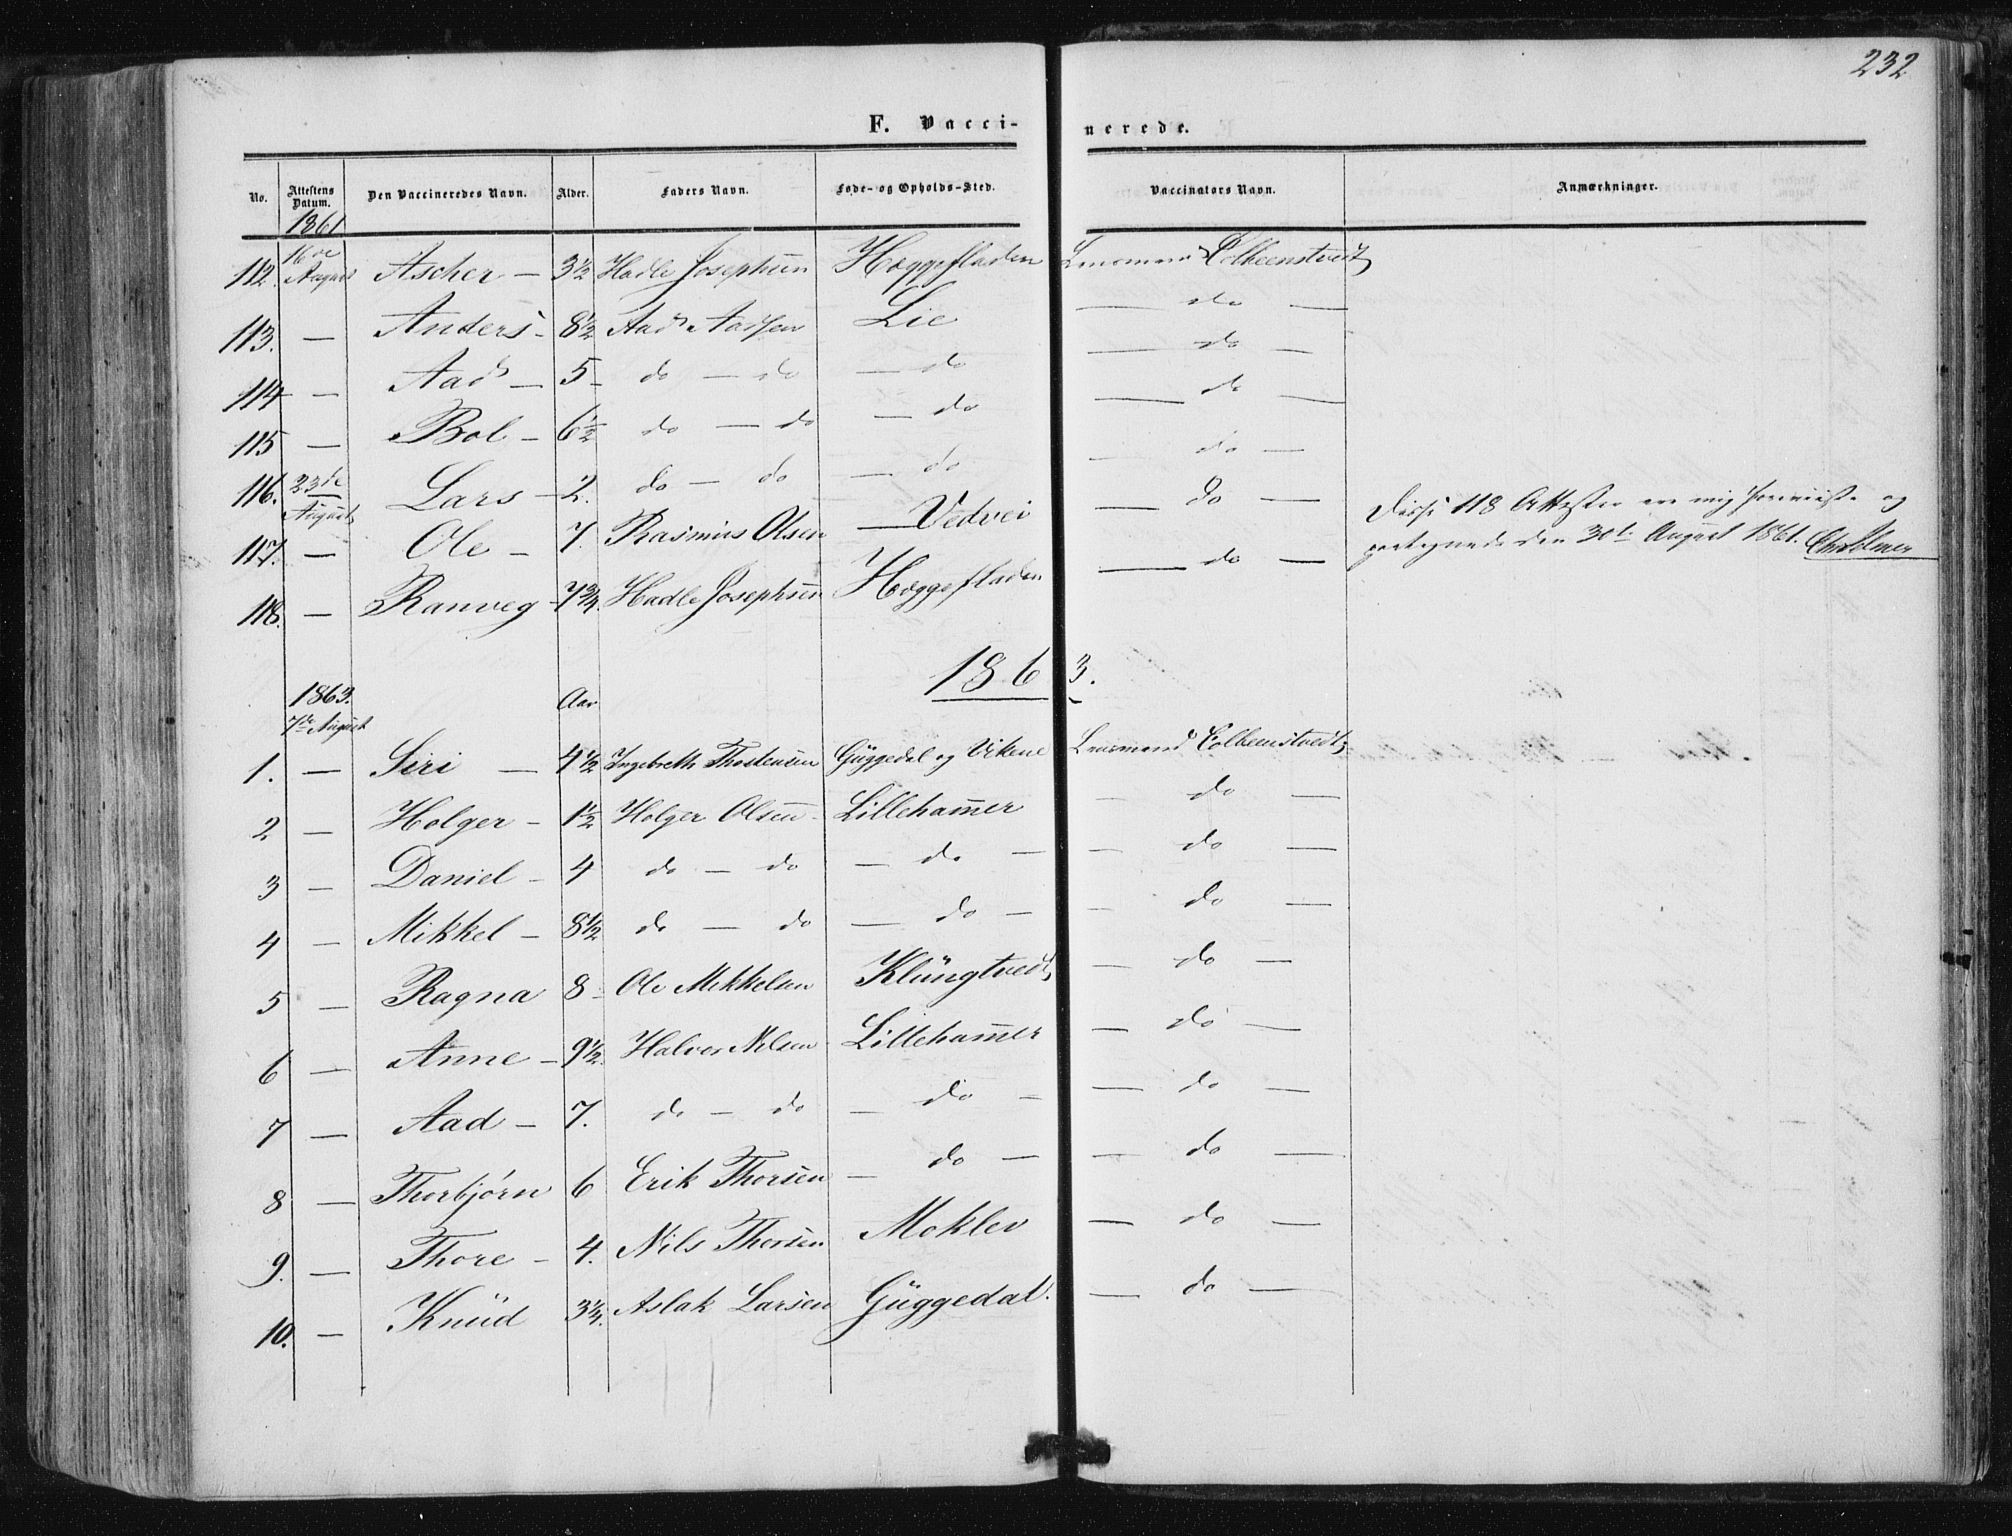 232
F. Vacci-nerede.
No. Attestens Datum. Den Vaccineredes Navn. Alder. Faders Navn. Føde- og Opholds-Sted. Vaccinators Navn. Anmærkninger.
1861
112. 16de August Ascher — 3½ Hadle Josephsen Heggefladen Lensmand Colbeenstvedt
113. — Anders — 8½ Aad Aadsen Lie — do —
114 — Aad — 5 — do — do — do — do —
115 — Bol — 6½ do — do — do — do —
116. 23de August Lars — 2. do — do — do — do —
117. — Ole — 7. Rasmus Olsen — Vedvei — do —
118. — Ranveg — 7¾. Hadle Josephsen Heggefladen — do —
Disse 118 Attester er mig foreviiste og
paategnede den 30t. August 1861.
1863.
1863.
7de August Aar
1. — Siri — 4½ Ingebreth Thostensen Güggedal og Vikene Lensmand Colbeenstvedt
2 — Holger — 1½ Holger Olsen — Lillehammer — do —
3 — Daniel — 4 do — do — do — — do —
4 — Mikkel — 8½ do — do — do — — do —
5 — Ragna 8 — Ole Mikkelsen Klüngtvedt — do —
6 — Anne — 9½. Halvor Nilsen Lillehammer — do —
7 — Aad — 7. do — do — do — — do —
8 — Thorbjørn 6 Erik Thorsen — do — — do —
9. — Thore — 4. Nils Thorsen Moklev — do —
10. — Knüd 3¼. Aslak Larsen Güggedal. — do —